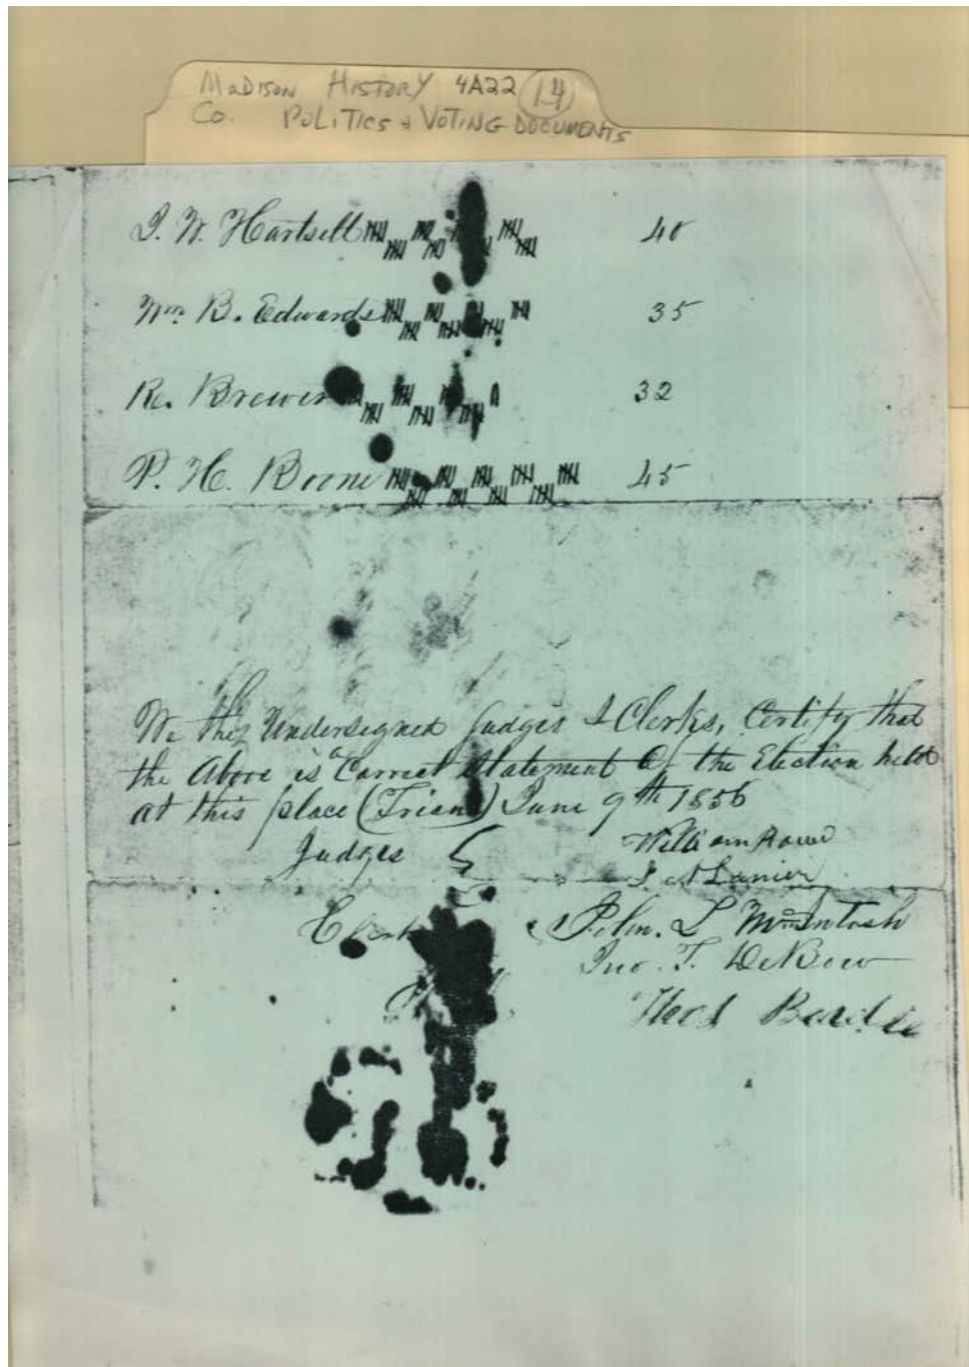 MADISON HISTORY 4A22 14
Co. POLITICS & VOTING DOCUMENTS
J. W. Hartsell 40
Wm. B. Edwards 35
Re. Brewer 32
P. H. Boone 45
We the Undersigned Judges & Clerks, Certify that
the Above is Correct Statement Of the Election held
at this place (Triana) June 9th 1856
Judges William Rowe
Lanier
Clerk L McIntosh
Jno. T. DeBow
Thos